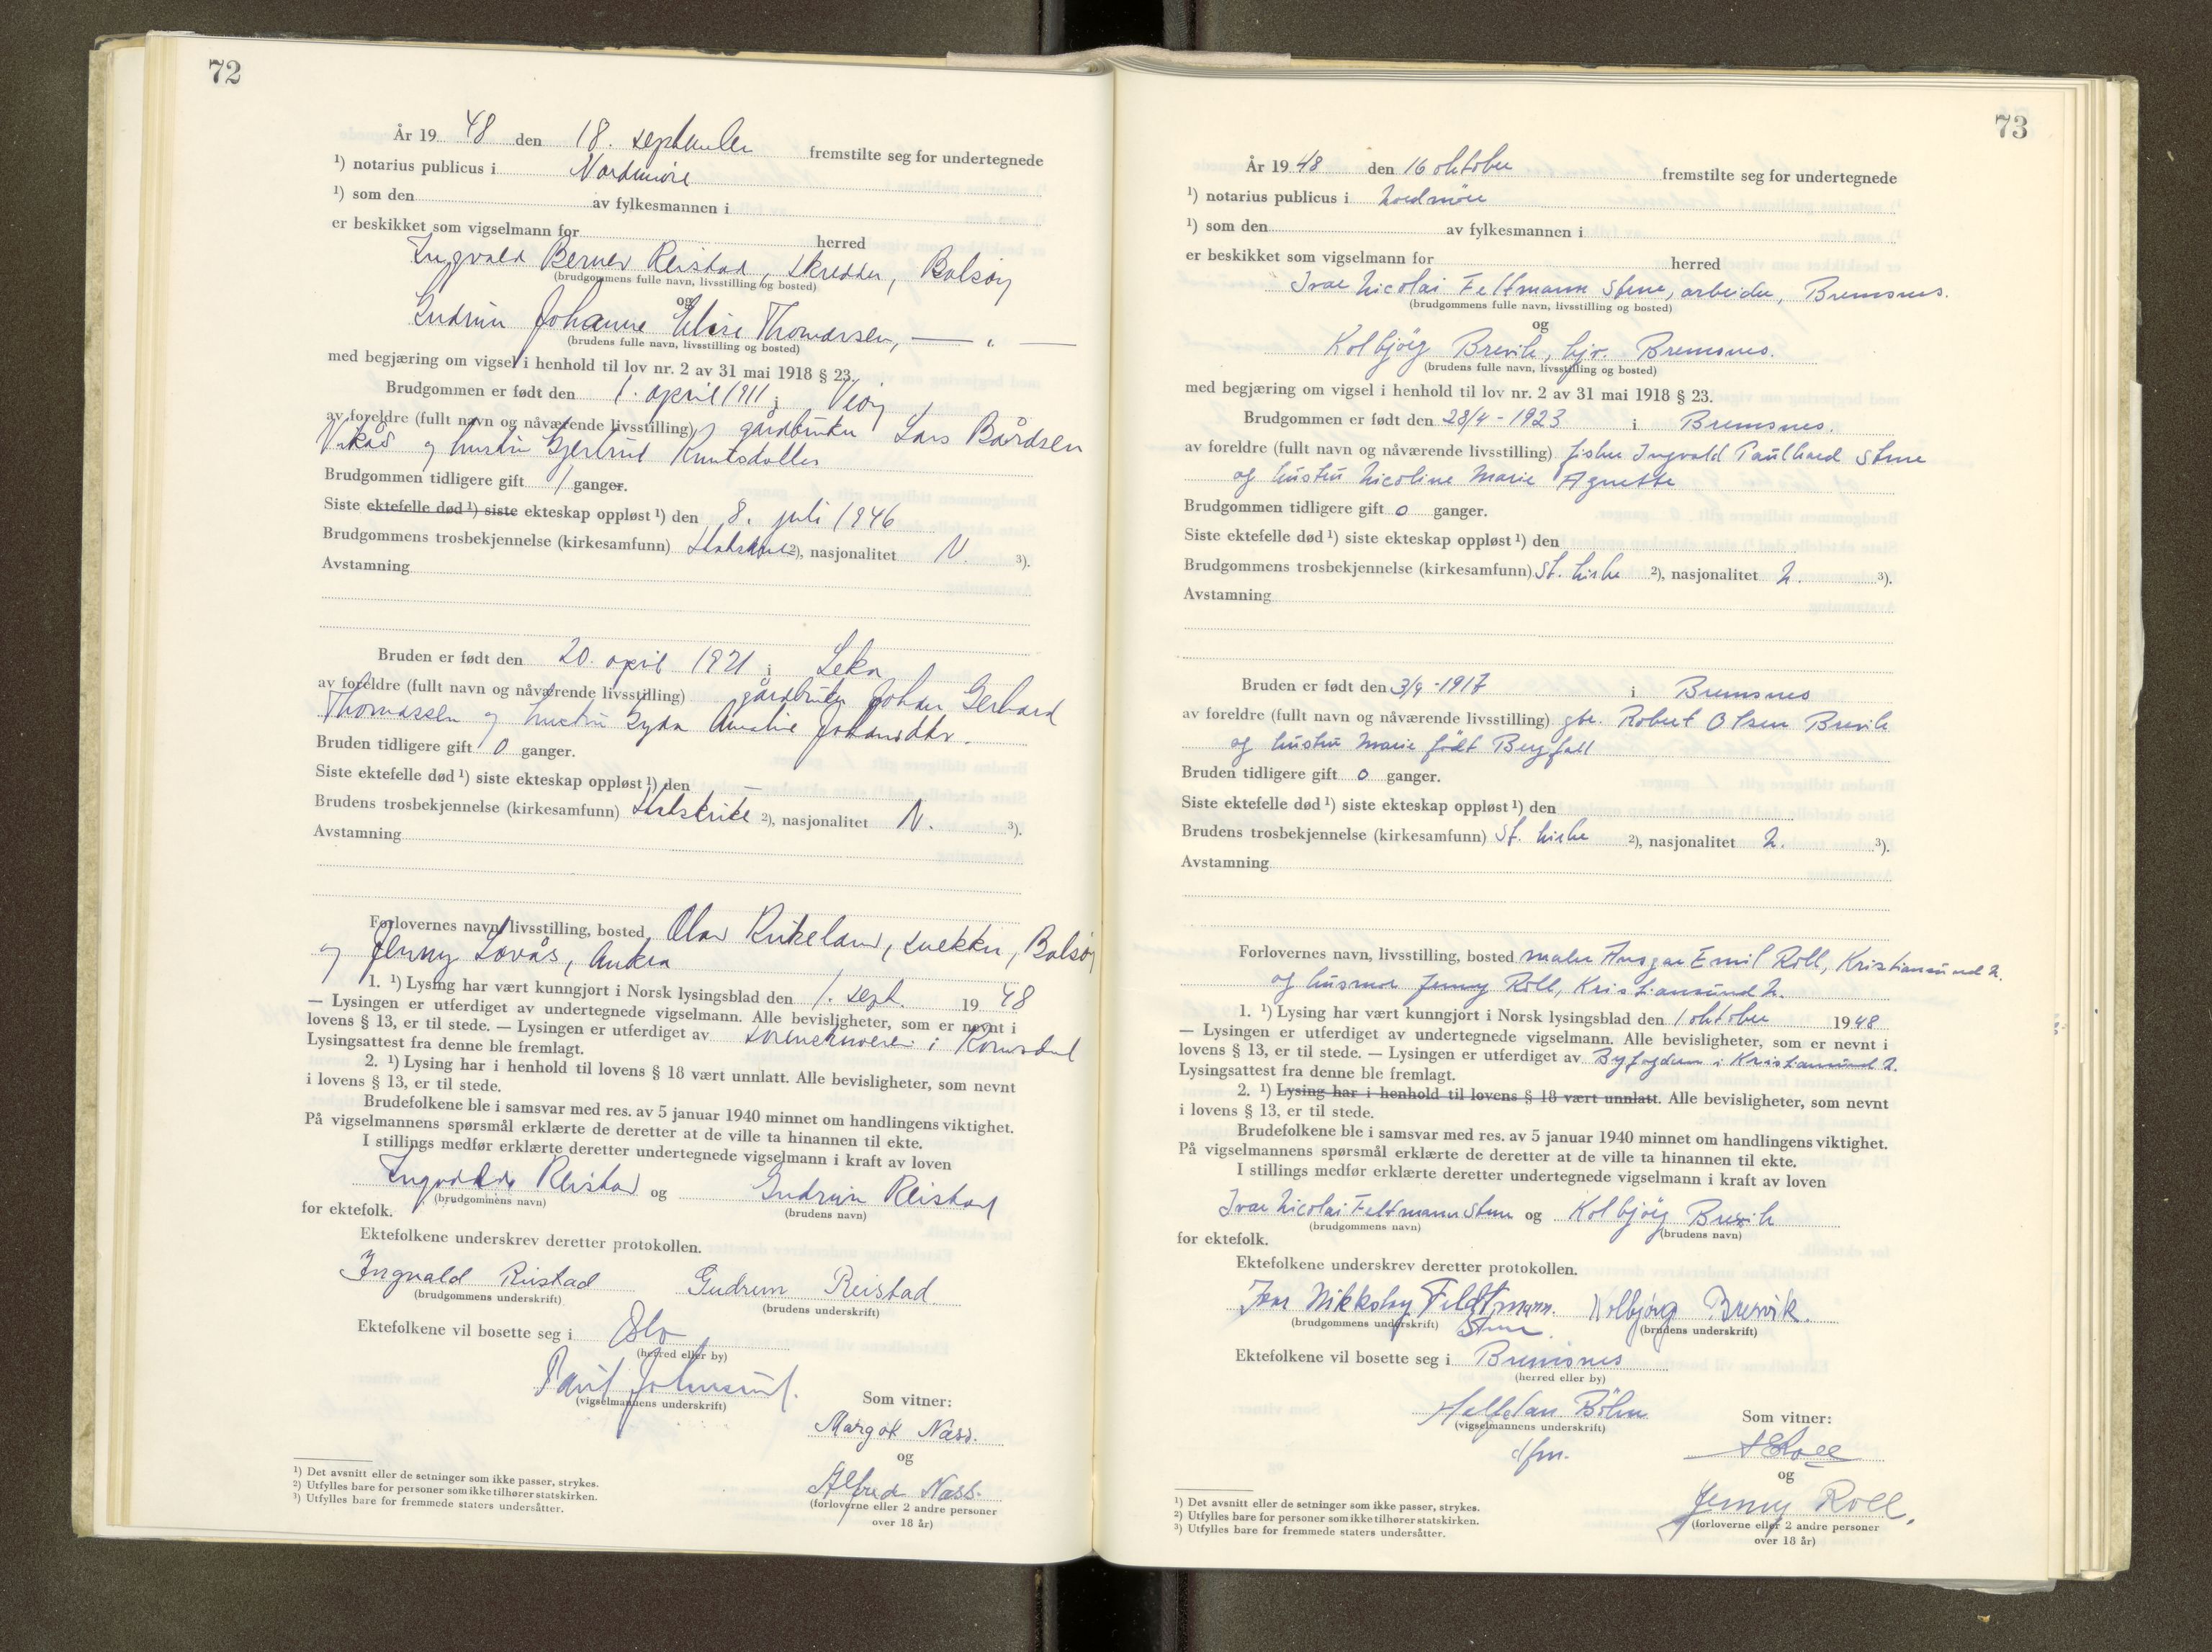 72
År 19 48 den 18. september fremstilte seg for undertegnede
¹) notarius publicus i Nordmøre
¹) som den av fylkesmannen i
er beskikket som vigselmann for herred
Ingvald Berner Reistad, skredder, Bolsøy
(brudgommens fulle navn, livsstilling og bosted)
og
Gudrun Johanne Elise Thomassen, — " —
(brudens fulle navn, livsstilling og bosted)
med begjæring om vigsel i henhold til lov nr. 2 av 31 mai 1918 § 23.
Brudgommen er født den 1. april 1911 i Veøy
av foreldre (fullt navn og nåværende livsstilling) gårdbruker Lars Bårdsen
Vikås og hustru Gjertrud Knutsdatter
Brudgommen tidligere gift 1 ganger.
Siste ektefelle død ¹) siste ekteskap oppløst ¹) den 8. juli 1946
Brudgommens trosbekjennelse (kirkesamfunn) statskirke ²), nasjonalitet N. ³).
Avstamning
Bruden er født den 20. april 1921 i Leka
av foreldre (fullt navn og nåværende livsstilling) gårdbruker Johan Gerhard
Thomassen og hustru Gyda Amalie Johansdtr.
Bruden tidligere gift 0 ganger.
Siste ektefelle død ¹) siste ekteskap oppløst ¹) den —
Brudens trosbekjennelse (kirkesamfunn) statskirke ²), nasjonalitet N. ³).
Avstamning
Forlovernes navn, livsstilling, bosted Olav snekker, Bolsøy
og Jenny Løvås, Aukra
1. ¹) Lysing har vært kunngjort i Norsk lysingsblad den 1. sept. 19 48
— Lysingen er utferdiget av undertegnede vigselmann. Alle bevisligheter, som er nevnt i
lovens § 13, er til stede. — Lysingen er utferdiget av sorenskriveren i Romsdal
Lysingsattest fra denne ble fremlagt.
2. ¹) Lysing har i henhold til lovens § 18 vært unnlatt. Alle bevisligheter, som nevnt
i lovens § 13, er til stede.
Brudefolkene ble i samsvar med res. av 5 januar 1940 minnet om handlingens viktighet.
På vigselmannens spørsmål erklærte de deretter at de ville ta hinannen til ekte.
I stillings medfør erklærte deretter undertegnede vigselmann i kraft av loven
Ingvald Reistad og Gudrun Reistad
(brudgommens navn) (brudens navn)
for ektefolk.
Ektefolkene underskrev deretter protokollen.
Ingvald Reistad Gudrun Reistad
(brudgommens underskrift) (brudens underskrift)
Ektefolkene vil bosette seg i Oslo
(herred eller by)
(vigselmannens underskrift)
Som vitner:
Margot Næss.
og
Alfred Næss.
(forloverne eller 2 andre personer
over 18 år)
¹) Det avsnitt eller de setninger som ikke passer, strykes.
²) Utfylles bare for personer som ikke tilhører statskirken.
³) Utfylles bare for fremmede staters undersåtter.
73
År 19 48 den 16 oktober fremstilte seg for undertegnede
¹) notarius publicus i Nordmöre
¹) som den av fylkesmannen i
er beskikket som vigselmann for herred
Ivar Nicolai Feltmann Stene, arbeider, Bremsnes.
(brudgommens fulle navn, livsstilling og bosted)
og
Kolbjörg Brevik, hjv. Bremsnes.
(brudens fulle navn, livsstilling og bosted)
med begjæring om vigsel i henhold til lov nr. 2 av 31 mai 1918 § 23.
Brudgommen er født den 28/4 - 1923 i Bremsnes.
av foreldre (fullt navn og nåværende livsstilling) fisker Ingvald Paulhard Stene
og hustru Nicoline Marie Agnette
Brudgommen tidligere gift 0 ganger.
Siste ektefelle død ¹) siste ekteskap oppløst ¹) den
Brudgommens trosbekjennelse (kirkesamfunn) St. kirke ²), nasjonalitet N. ³).
Avstamning
Bruden er født den 3/9 - 1917 i Bremsnes
av foreldre (fullt navn og nåværende livsstilling) gbr. Robert Olsen Brevik
og hustru Marie født Bergfall
Bruden tidligere gift 0 ganger.
Siste ektefelle død ¹) siste ekteskap oppløst ¹) den
Brudens trosbekjennelse (kirkesamfunn) St. kirke ²), nasjonalitet N. ³).
Avstamning
Forlovernes navn, livsstilling, bosted maler Ansgar Emil Roll, Kristiansund N.
og husmor Jenny Roll, Kristiansund N.
1. ¹) Lysing har vært kunngjort i Norsk lysingsblad den 1 oktober 19 48
— Lysingen er utferdiget av undertegnede vigselmann. Alle bevisligheter, som er nevnt i
lovens § 13, er til stede. — Lysingen er utferdiget av Byfogden i Kristiansund N.
Lysingsattest fra denne ble fremlagt.
2. ¹) Lysing har i henhold til lovens § 18 vært unnlatt. Alle bevisligheter, som nevnt
i lovens § 13, er til stede.
Brudefolkene ble i samsvar med res. av 5 januar 1940 minnet om handlingens viktighet.
På vigselmannens spørsmål erklærte de deretter at de ville ta hinannen til ekte.
I stillings medfør erklærte deretter undertegnede vigselmann i kraft av loven
Ivar Nicolai Feltmann Stene og Kolbjörg Brevik
(brudgommens navn) (brudens navn)
for ektefolk.
Ektefolkene underskrev deretter protokollen.
Ivar Nikkolay Feldtmann. Kolbjørg Brevik.
(brudgommens underskrift) Stene. (brudens underskrift)
Ektefolkene vil bosette seg i Bremsnes
(herred eller by)
Halfdan Böhn
(vigselmannens underskrift)
dfm.
Som vitner:
A E Roll
og
Jenny Roll.
(forloverne eller 2 andre personer
over 18 år)
¹) Det avsnitt eller de setninger som ikke passer, strykes.
²) Utfylles bare for personer som ikke tilhører statskirken.
³) Utfylles bare for fremmede staters undersåtter.